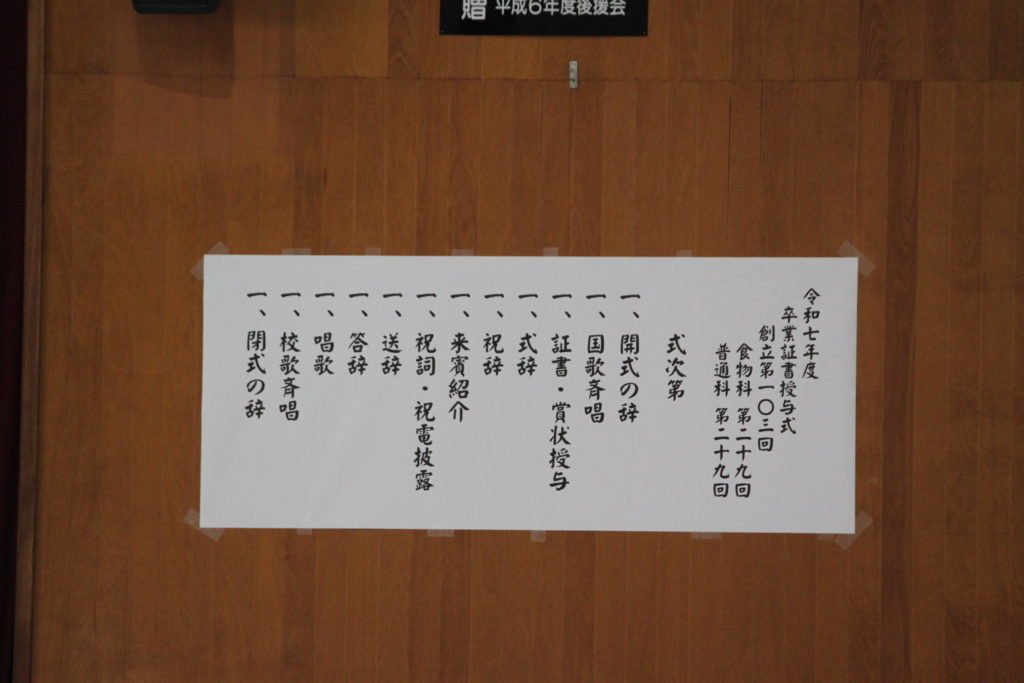 贈 平成6年度後援会
令和七年度
卒業証書授与式
創立第一〇三回
食物科 第二十九回
普通科 第二十九回
式次第
一、開式の辞
一、国歌斉唱
一、証書・賞状授与
一、式辞
一、祝辞
一、来賓紹介
一、祝詞・祝電披露
一、送辞
一、答辞
一、唱歌
一、校歌斉唱
一、閉式の辞